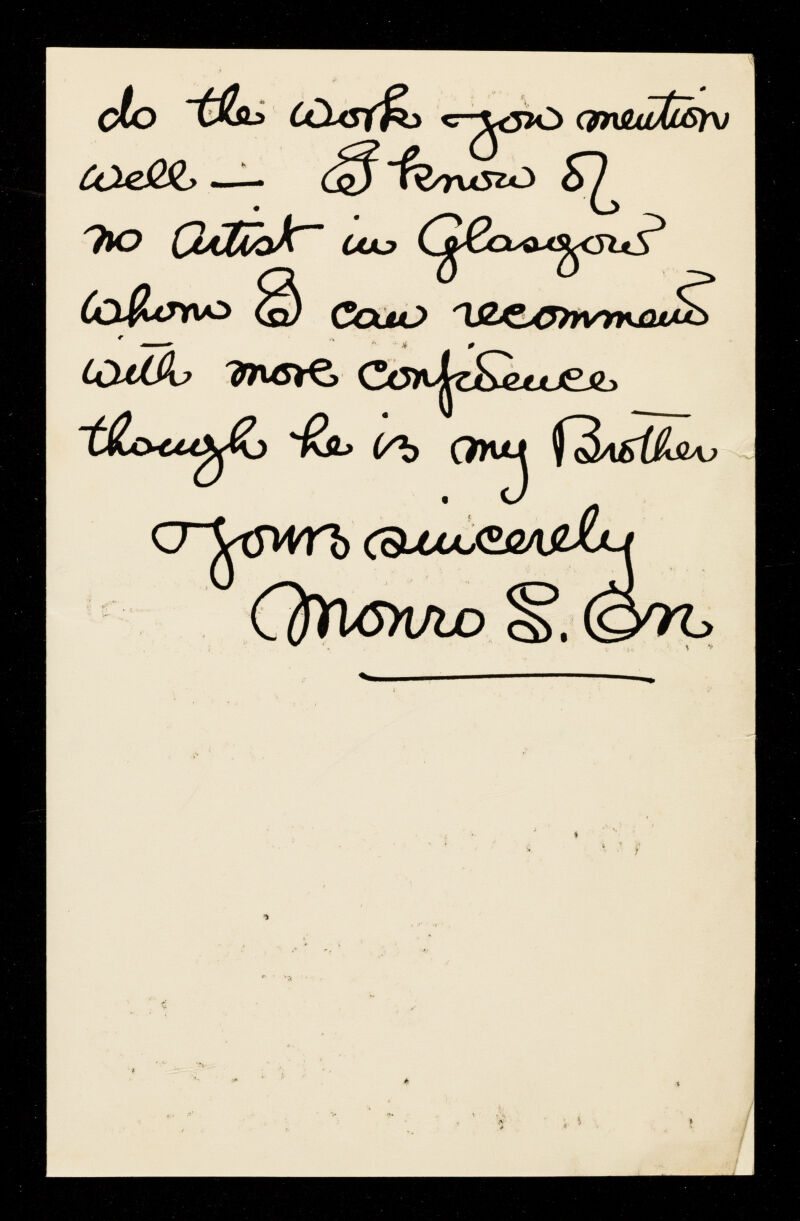 do the work you mention
well — I know of
no Artist in Glasgow
whom I can recommend
with more confidence
though he is my Brother
Yours sincerely
Monro S. Orr